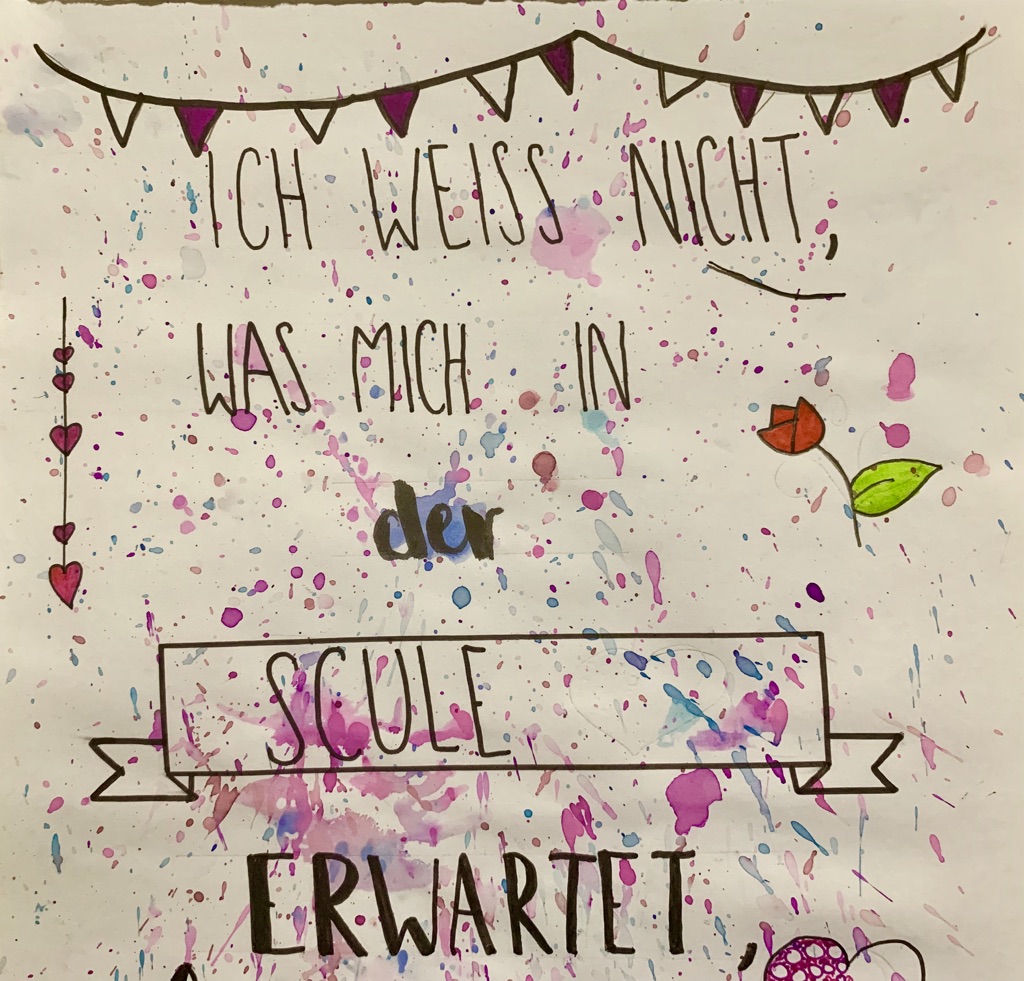 ICH WEISS NICHT,
WAS MICH IN
der
SCULE
ERWARTET,